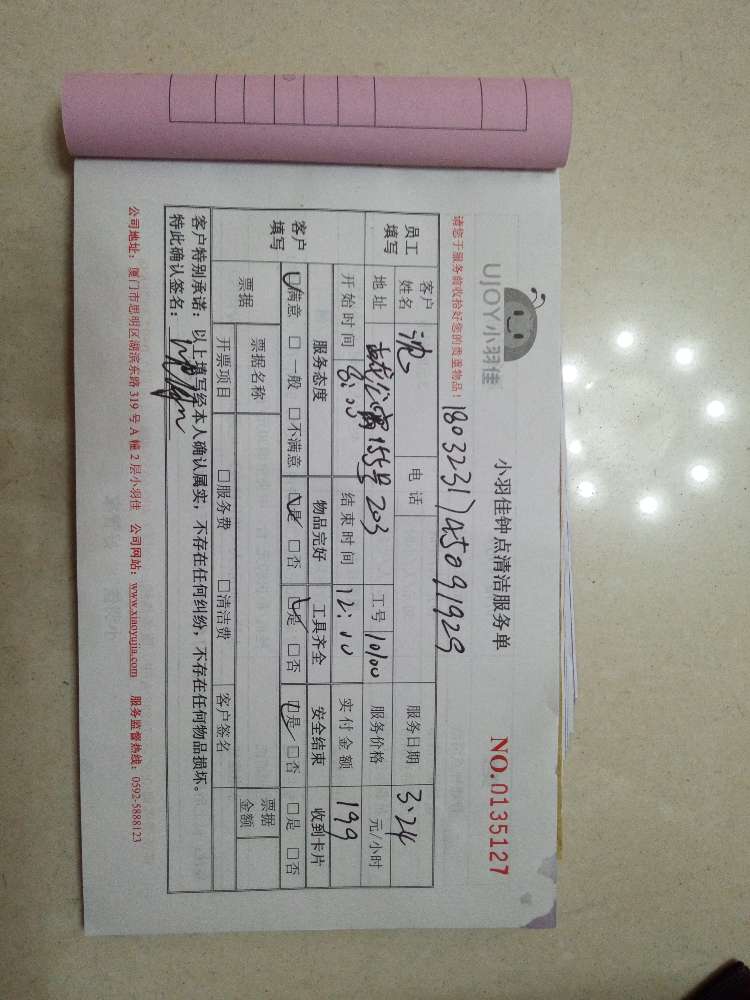 UJOY小羽佳
小羽佳钟点清洁服务单
NO.0135127
请您于服务前收拾好您的贵重物品！
18032317450 91929
员工填写 客户姓名 沈 电话 服务日期 3.24
地址 公寓155号203 工号 10100 服务价格 元/小时
开始时间 8:00 结束时间 12:00 实付金额 199
客户填写 服务态度 物品完好 工具齐全 安全结束 收到卡片
☑满意 □一般 □不满意 ☑是 □否 ☑是 □否 ☑是 □否 □是 □否
票据 票据名称 票据金额
开票项目 □服务费 □清洁费 客户签名
客户特别承诺：以上填写经本人确认属实，不存在任何纠纷，不存在任何物品损坏。
特此确认签名：
公司地址：厦门市思明区湖滨东路 319 号 A 幢 2 层小羽佳 公司网站：www.xiaoyujia.com 服务监督热线：0592-5888123